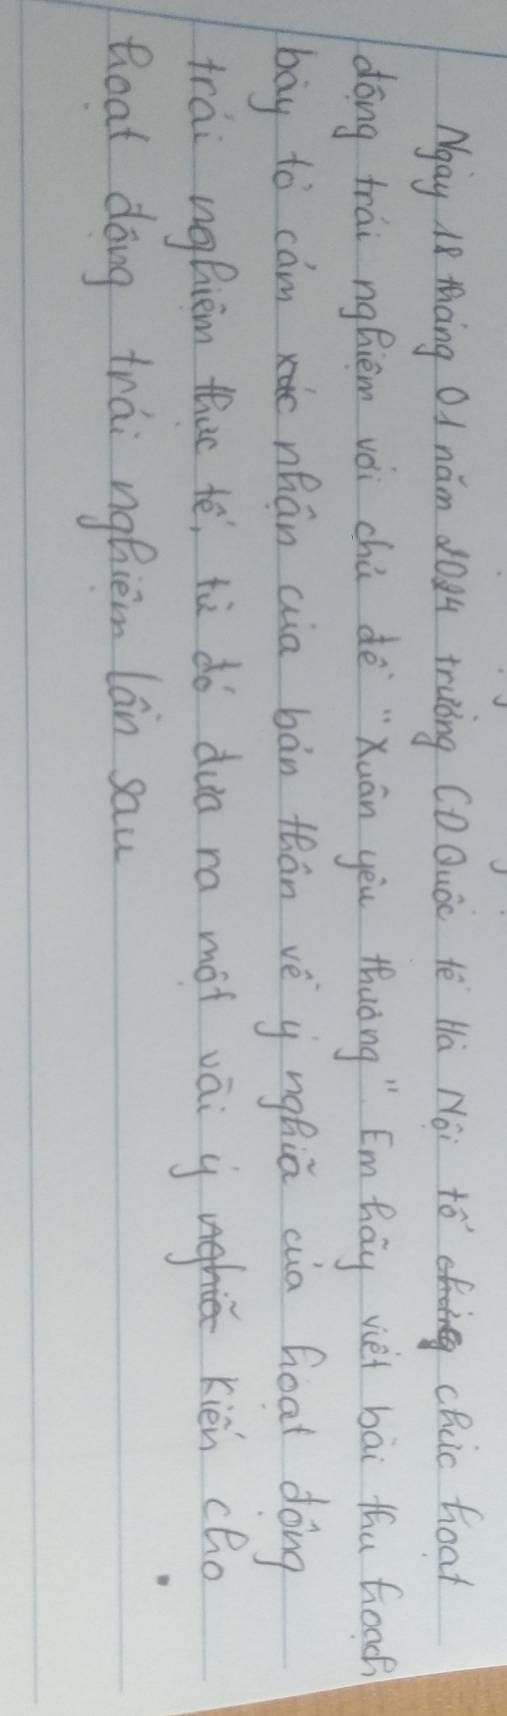 Ngày 18 tháng 01 năm 2024 trường CD Quốc tế Hà Nội tổ chức hoạt
động trải nghiệm với chủ đề "Xuân yêu thương". Em hãy viết bài thu hoạch
bày tỏ cảm nhận của bản thân về ý nghĩa của hoạt động
trải nghiệm thực tế, từ đó đưa ra một vài ý kiến cho
hoạt động trải nghiệm lần sau